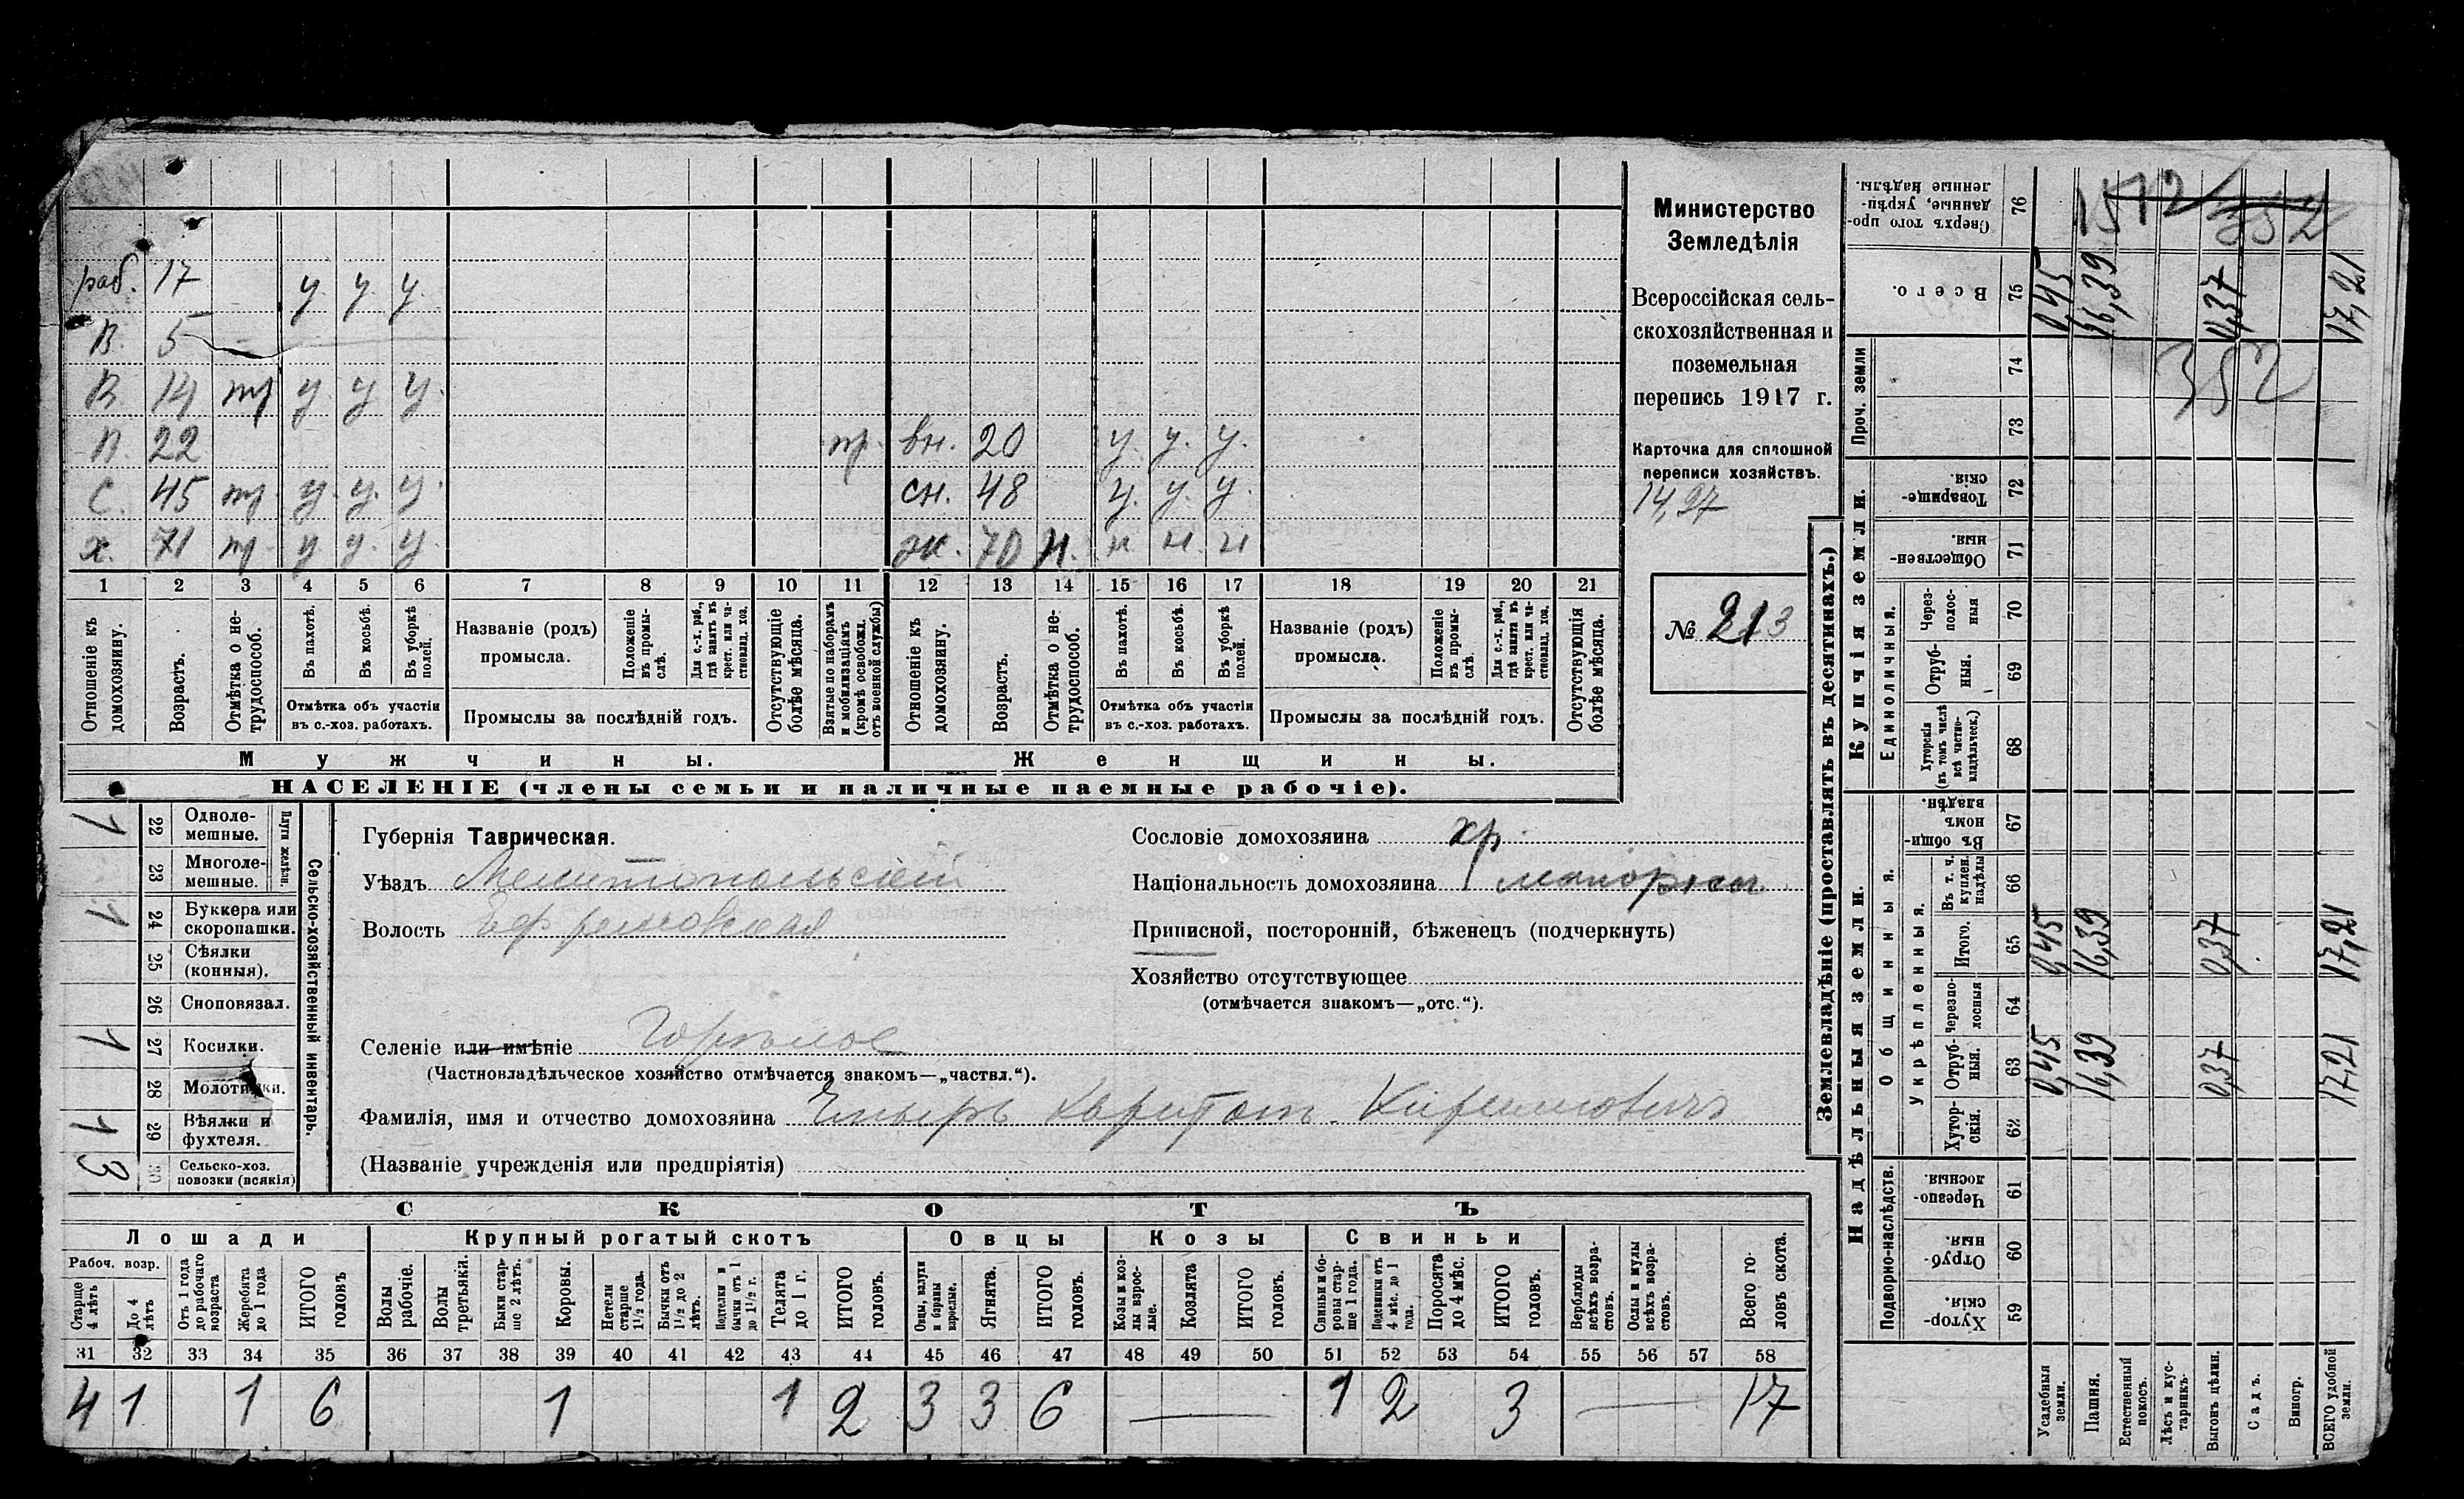 раб. 17 у у у
В. 5
В. 14 нр у у у
П. 22 пр. вн. 20 у. у. у.
С. 45 нр у. у. у. сн. 48 у. у. у.
х. 71 нр у у. у. эк. 70 н. н н. н
1 2 3 4 5 6 7 8 9 10 11 12 13 14 15 16 17 18 19 20 21
Отношеніе къ домохозяину.
Возрастъ.
Отмѣтка о нетрудоспособ.
Въ пахотѣ.
Въ косьбѣ.
Въ уборкѣ полей.
Отмѣтка объ участіи
въ с.-хоз. работахъ.
Названіе (родъ)
промысла.
Положеніе въ промыслѣ.
Для с.-х. раб., гдѣ занятъ въ крест. или частновлад. хоз.
Промыслы за послѣдній годъ.
Отсутствующіе болѣе мѣсяца.
Взятые по наборамъ и мобилизаціямъ (кромѣ освобожд. отъ военной службы)
Отношеніе къ домохозяину.
Возрастъ.
Отмѣтка о нетрудоспособ.
Въ пахотѣ.
Въ косьбѣ.
Въ уборкѣ полей.
Отмѣтка объ участіи
въ с.-хоз. работахъ.
Названіе (родъ)
промысла.
Положеніе въ промыслѣ.
Для с.-х. раб., гдѣ занята въ крест. или частновлад. хоз.
Промыслы за послѣдній годъ.
Отсутствующія болѣе мѣсяца.
Мужчины. Женщины.
НАСЕЛЕНІЕ (члены семьи и наличные наемные рабочіе).
Министерство
Земледѣлія
Всероссійская сель-
скохозяйственная и
поземельная
перепись 1917 г.
Карточка для сплошной
переписи хозяйствъ.
14,97
№ 213
Сельско-хозяйственный инвентарь.
Плуги желѣзн.
1 22 Одноле-
мешные.
23 Многоле-
мешные.
1 24 Буккера или
скоропашки.
25 Сѣялки
(конныя).
26 Сноповязал.
1 27 Косилки.
28 Молотилки.
1 29 Вѣялки и
фухтеля.
3 30 Сельско-хоз.
повозки (всякія)
Губернія Таврическая.
Уѣздъ Мелитопольскій
Волость
Селеніе или имѣніе Горькое
(Частновладѣльческое хозяйство отмѣчается знакомъ—„частвл.“).
Фамилія, имя и отчество домохозяина Харитон
(Названіе учрежденія или предпріятія)
Сословіе домохозяина хр.
Національность домохозяина малоросс.
Приписной, посторонній, бѣженецъ (подчеркнуть)
Хозяйство отсутствующее
(отмѣчается знакомъ—„отс.“).
СКОТЪ
Лошади Крупный рогатый скотъ Овцы Козы Свиньи
Рабоч. возр.
Старше 4 лѣтъ
До 4 лѣтъ
Отъ 1 года до рабочаго возраста
Жеребята до 1 года
ИТОГО головъ
Волы рабочіе.
Волы третьяки.
Быки старше 2 лѣтъ.
Коровы.
Нетели старше 1½ года.
Бычки отъ 1½ до 2 лѣтъ.
Подтелки и бычки отъ 1 до 1½ г.
Телята до 1 г.
ИТОГО головъ.
Овцы, валухи и бараны взрослые.
Ягнята.
ИТОГО головъ.
Козы и козлы взрослые.
Козлята
ИТОГО головъ.
Свиньи и боровы старше 1 года.
Подсвинки отъ 4 мѣс. до 1 года.
Поросята до 4 мѣс.
ИТОГО головъ.
Верблюды всѣхъ возрастовъ.
Ослы и мулы всѣхъ возрастовъ.
Всего головъ скота.
31 32 33 34 35 36 37 38 39 40 41 42 43 44 45 46 47 48 49 50 51 52 53 54 55 56 57 58
4 1 1 6 1 1 2 3 3 6 — 1 2 3 — 17
Землевладѣніе (проставлять въ десятинахъ.)
Надѣльныя земли. Купчія земли.
Проч. земли
Общинныя.
Укрѣпленныя.
Единоличныя.
Подворно-наслѣдств.
Сверхъ того проданные, укрѣпленные надѣлы. 76 1512 352
Всего. 75 0,45 16,39 0,37 17,21
74 352
73
Товарищескія 72
Общественныя. 71
Черезполосныя 70
Отрубныя. 69
Хуторскія (въ томъ числѣ всѣ частновладѣльческ.) 68
Въ общинномъ владѣн. 67
Въ т. ч. куплен. надѣлы 66
Итого. 65 0,45 16,39 0,37 17,21
Черезполосныя 64
Отрубныя. 63 0,45 16,39 0,37 17,21
Хуторскія. 62
Черезполосныя 61
Отрубныя. 60
Хуторскія. 59
Усадебныя земли.
Пашня.
Естественный покосъ.
Лѣсъ и кустарникъ.
Выгонъ цѣлин.
Садъ.
Виногр.
ВСЕГО удобной земли.